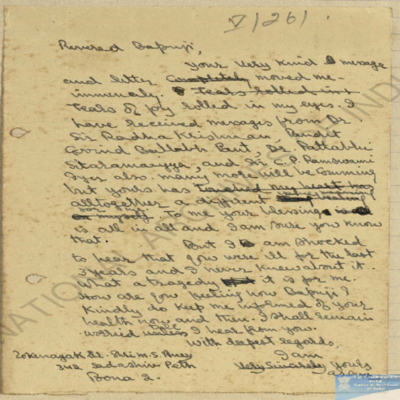 V/261
Revered Bapuji,
Your very kind message
and letter completely moved me
immensely. Tears rolled in
Tears of joy rolled in my eyes. I
have received messages from Dr
Sir Radha Krishnan, Pandit
Govind Ballabh Pant, Dr. Pattabhi
Sitaramayya, and Sir C.P. Ramswami
Iyer also. many more will be coming
but yours has touched my heart
alltogether a different
on myself. To me your blessing is
is all in all and I am sure you know
that. But I am shocked
to hear that you were ill for the last
3 years and I never knew about it.
What a tragedy it is for me.
How are you feeling now Bapuji?
Kindly do keep me informed of your
health now and then. I shall remain
worried unless I hear from you.
With deepest regards.
I am
Very Sincerely yours
C/o Shri M.S. Aney
342 Sadashiv Peth
Poona 2.